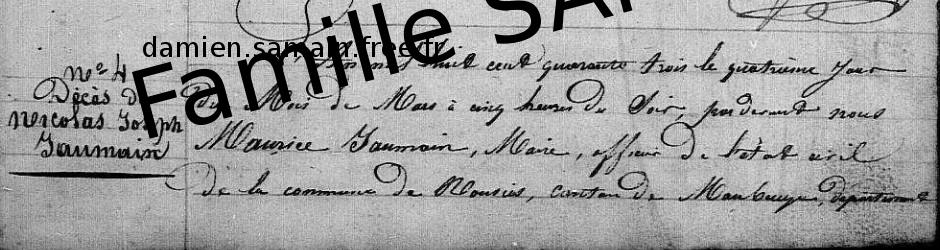 Famille SA
damien.samain.free.fr
N° 4
Décès de
Nicolas Joseph
Jaumain
huit cent quarante trois le quatrième jour
du Mois de Mars à cinq heures du Soir, pardevant nous
Maurice Jaumain, Maire, officier de l'état civil
de la commune de Rousies, canton de Maubeuge, département